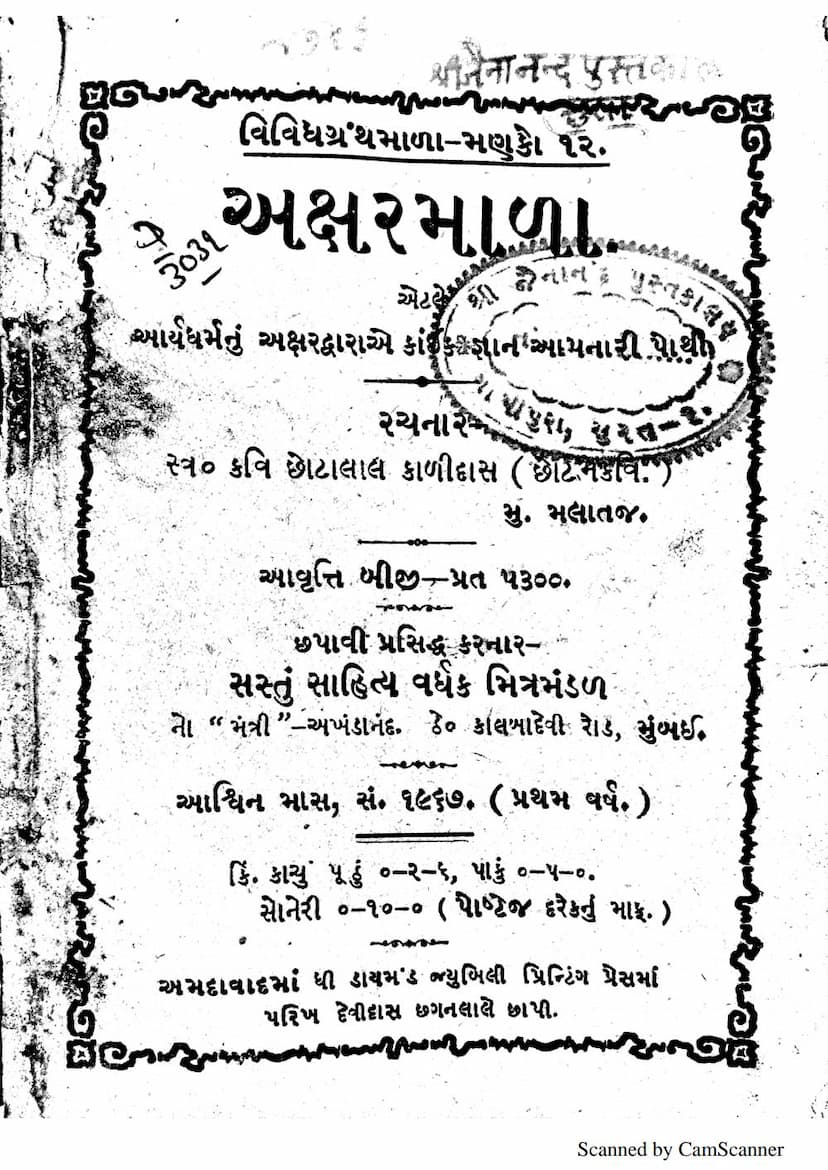 શ્રીજૈનાનન્દ પુસ્તકાલ
સુરત
વિવિધગ્રંથમાળા-મણકો ૧૨.
અક્ષરમાળા.
૩૦૩૧
એટલે
આર્યધર્મનું અક્ષરદ્વારાએ કાંઈક જ્ઞાન આપનારી પોથી
શ્રી જૈનાનંદ પુસ્તકાલય
ગોપીપુરા, સુરત-૨.
રચનાર
સ્વ૦ કવિ છોટાલાલ કાળીદાસ ( છોટમકવિ. )
મુ. મલાતજ.
આવૃત્તિ બીજી—પ્રત ૫૩૦૦.
છપાવી પ્રસિદ્ધ કરનાર-
સસ્તું સાહિત્ય વર્ધક મિત્રમંડળ
નો “મંત્રી”-અખંડાનંદ. ઠે૦ કાલબાદેવી રોડ, મુંબઈ.
આશ્વિન માસ, સં. ૧૯૬૭. ( પ્રથમ વર્ષ. )
કિં. કાચું પૂઠું ૦-૨-૬, પાકું ૦-૫-૦.
સોનેરી ૦-૧૦-૦ ( પોષ્ટેજ દરેકનું માફ. )
અમદાવાદમાં ધી ડાયમંડ જ્યુબિલી પ્રિન્ટિંગ પ્રેસમાં
પરિખ દેવીદાસ છગનલાલે છાપી.
Scanned by CamScanner